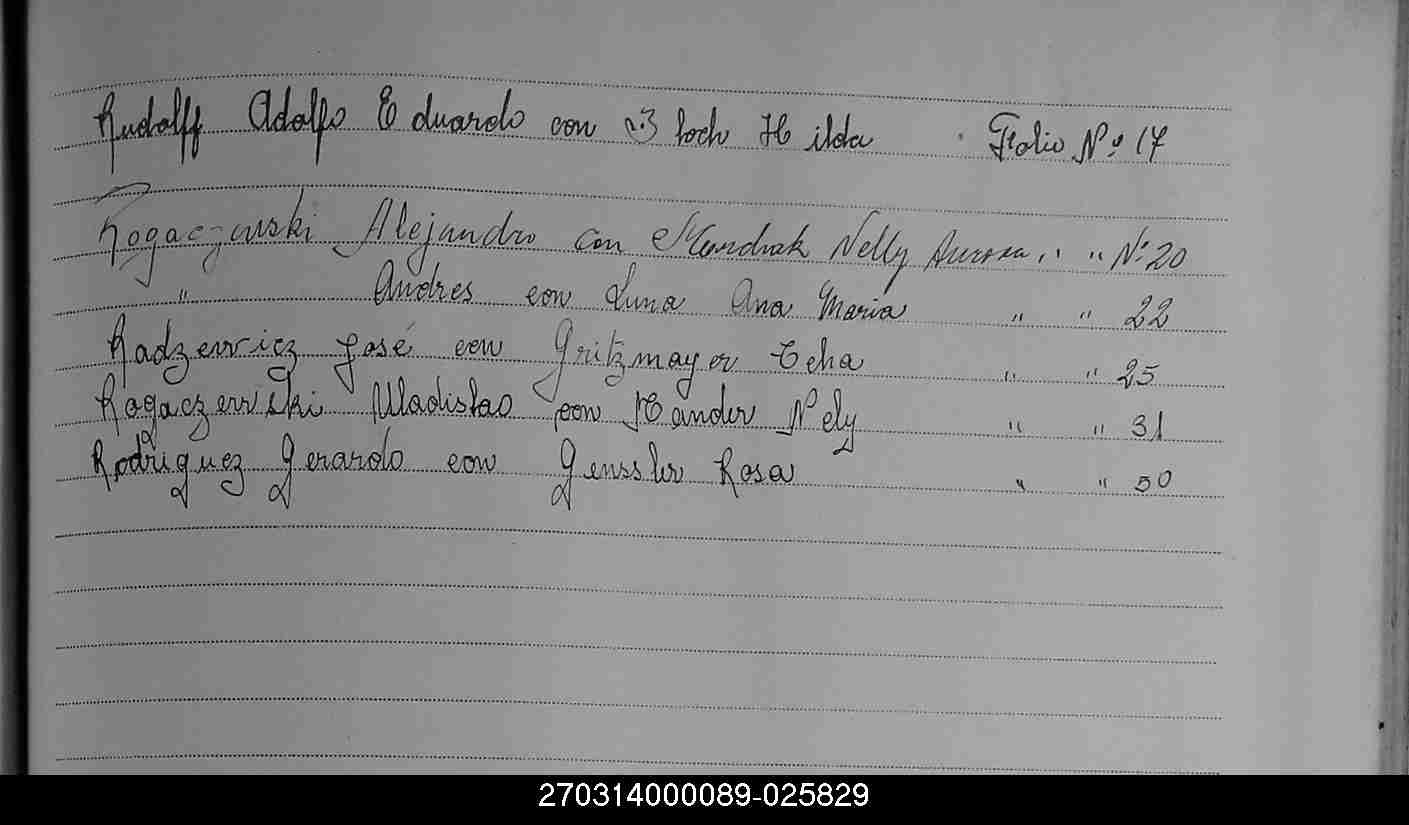 Rudolff Adolfo Eduardo con Bloch Hilda Folio Nº 17
Rogaczewski Alejandro con Nelly Aurora " " Nº 20
" Andres con Luna Ana Maria " " 22
Radzewicz José con Gritzmayer Celia " " 25
Rogaczewski Uladislao con Hander Nely " " 31
Rodriguez Gerardo con Genssler Rosa " " 50
270314000089-025829